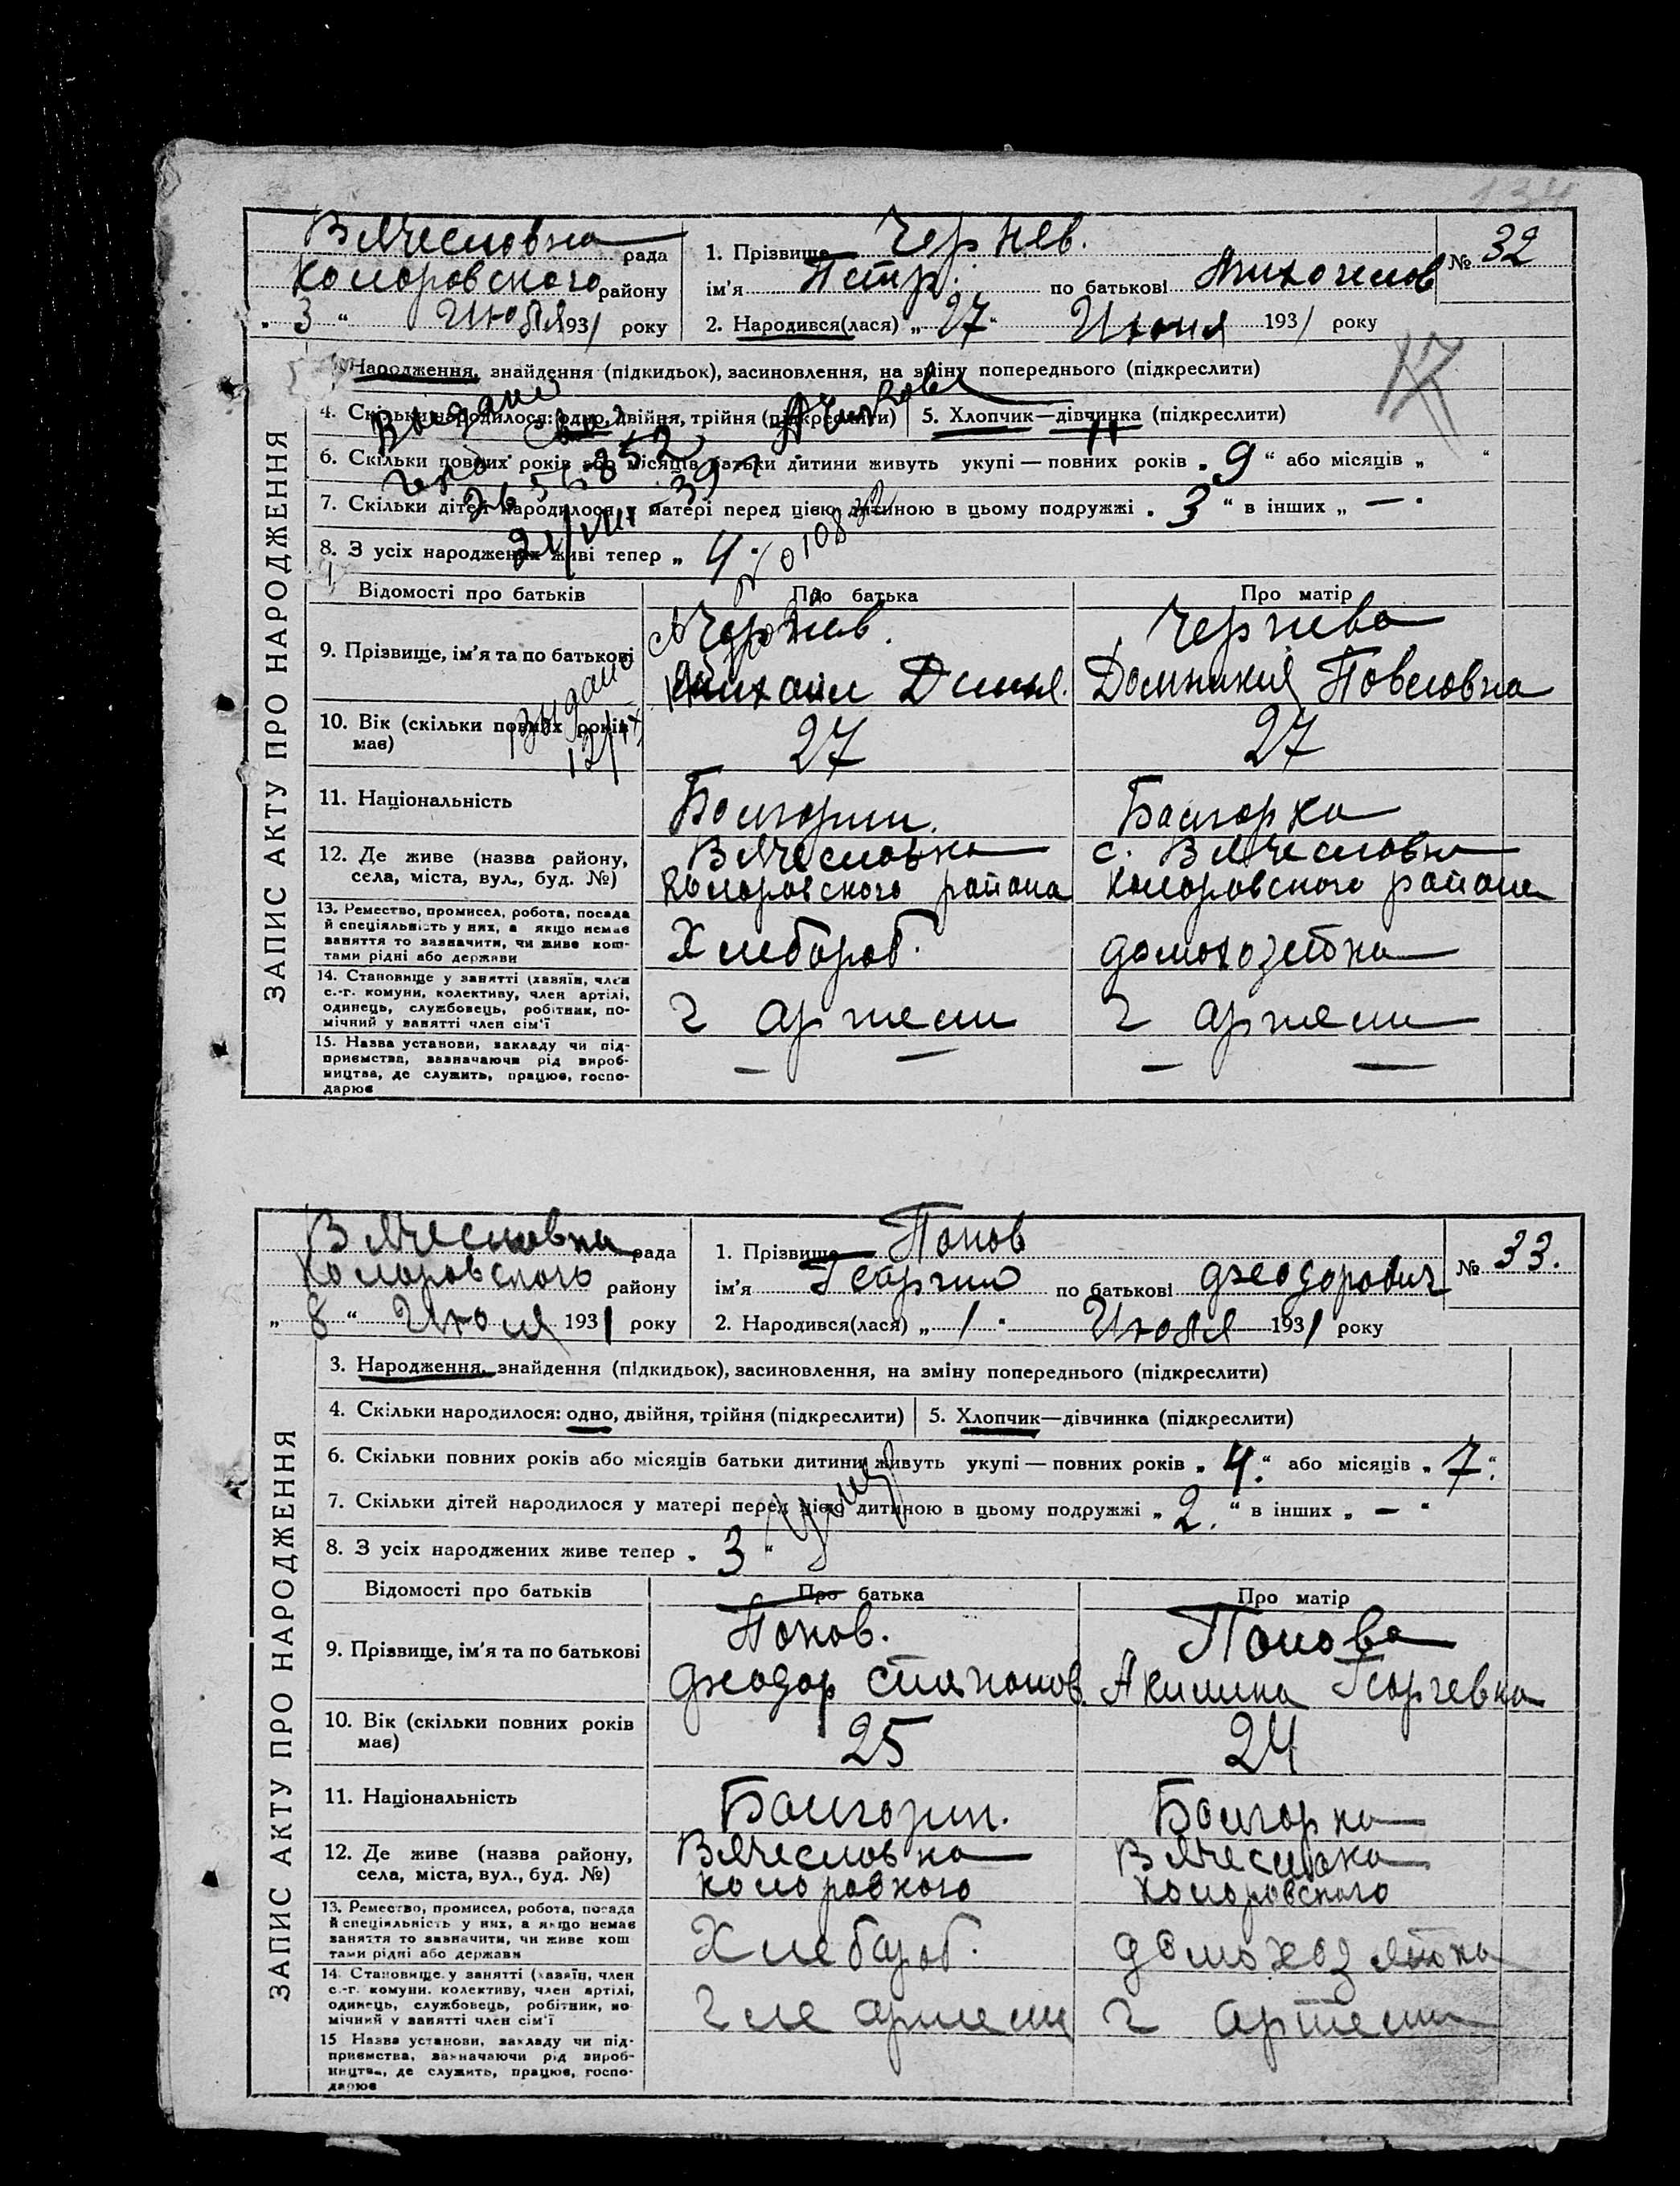 Вячесловка рада
Коларовского району
„ 3 “ Июля 1931 року
1. Прізвище Чернев.
ім'я Петр. по батькові Михайлов
2. Народився(лася) „ 27 “ Июня 1931 року
№ 32
ЗАПИС АКТУ ПРО НАРОДЖЕННЯ
Народження, знайдення (підкидьок), засиновлення, на зміну попереднього (підкреслити)
4. Скільки народилося: одно, двійня, трійня (підкреслити) 5. Хлопчик—дівчинка (підкреслити)
6. Скільки повних років або місяців батьки дитини живуть укупі — повних років „ 9 “ або місяців „ “
7. Скільки дітей народилося у матері перед цією дитиною в цьому подружжі „ 3 “ в інших „ — “
8. З усіх народжених живі тепер „ 4 “
Відомості про батьків Про батька Про матір
9. Прізвище, ім'я та по батькові
Чернев. Чернева
Михаил Домникия Повловна
10. Вік (скільки повних років має)
27 27
11. Національність
Болгорин. Болгорка
12. Де живе (назва району, села, міста, вул., буд. №)
Вячесловка с. Вячесловка
Коларовского района Коларовского района
13. Ремество, промисел, робота, посада
й спеціяльність у них, а якщо немає
заняття то зазначити, чи живе кош-
тами рідні або держави
Хлебороб. домохозяйка
14. Становище у занятті (хазяїн, член
с.-г. комуни, колективу, член артілі,
одинець, службовець, робітник, по-
мічний у занятті член сім'ї
ч артели ч артели
15. Назва установи, закладу чи під-
приємства, зазначаючи рід вироб-
ництва, де служить, працює, госпо-
дарює
— — — —
Видано
№ 0108
Видано
Вячесловка рада
Коларовского району
„ 8 “ Июля 1931 року
1. Прізвище Попов
ім'я Георгий по батькові Феодорович
2. Народився(лася) „ 1 “ Июля 1931 року
№ 33.
ЗАПИС АКТУ ПРО НАРОДЖЕННЯ
3. Народження, знайдення (підкидьок), засиновлення, на зміну попереднього (підкреслити)
4. Скільки народилося: одно, двійня, трійня (підкреслити) 5. Хлопчик—дівчинка (підкреслити)
6. Скільки повних років або місяців батьки дитини живуть укупі — повних років „ 4. “ або місяців „ 7 “.
7. Скільки дітей народилося у матері перед цією дитиною в цьому подружжі „ 2. “ в інших „ — “
8. З усіх народжених живе тепер „ 3 “
Відомості про батьків Про батька Про матір
9. Прізвище, ім'я та по батькові
Попов. Попова
Феодор Степанов. Акилина Георгевна
10. Вік (скільки повних років має)
25 24
11. Національність
Болгорин. Болгорка
12. Де живе (назва району, села, міста, вул., буд. №)
Вячесловка Вячесловка
Коларовкого Коларовского
13. Ремество, промисел, робота, посада
й спеціяльність у них, а якщо немає
заняття то зазначити, чи живе кош
тами рідні або держави
Хлебороб. домохозяйка
14. Становище у занятті (хазяїн, член
с.-г. комуни, колективу, член артілі,
одинець, службовець, робітник, по
мічний у занятті член сім'ї
чле артели ч артели
15 Назва установи, закладу чи під-
приємства, зазначаючи рід вироб-
ництва, де служить, працює, госпо-
дарює